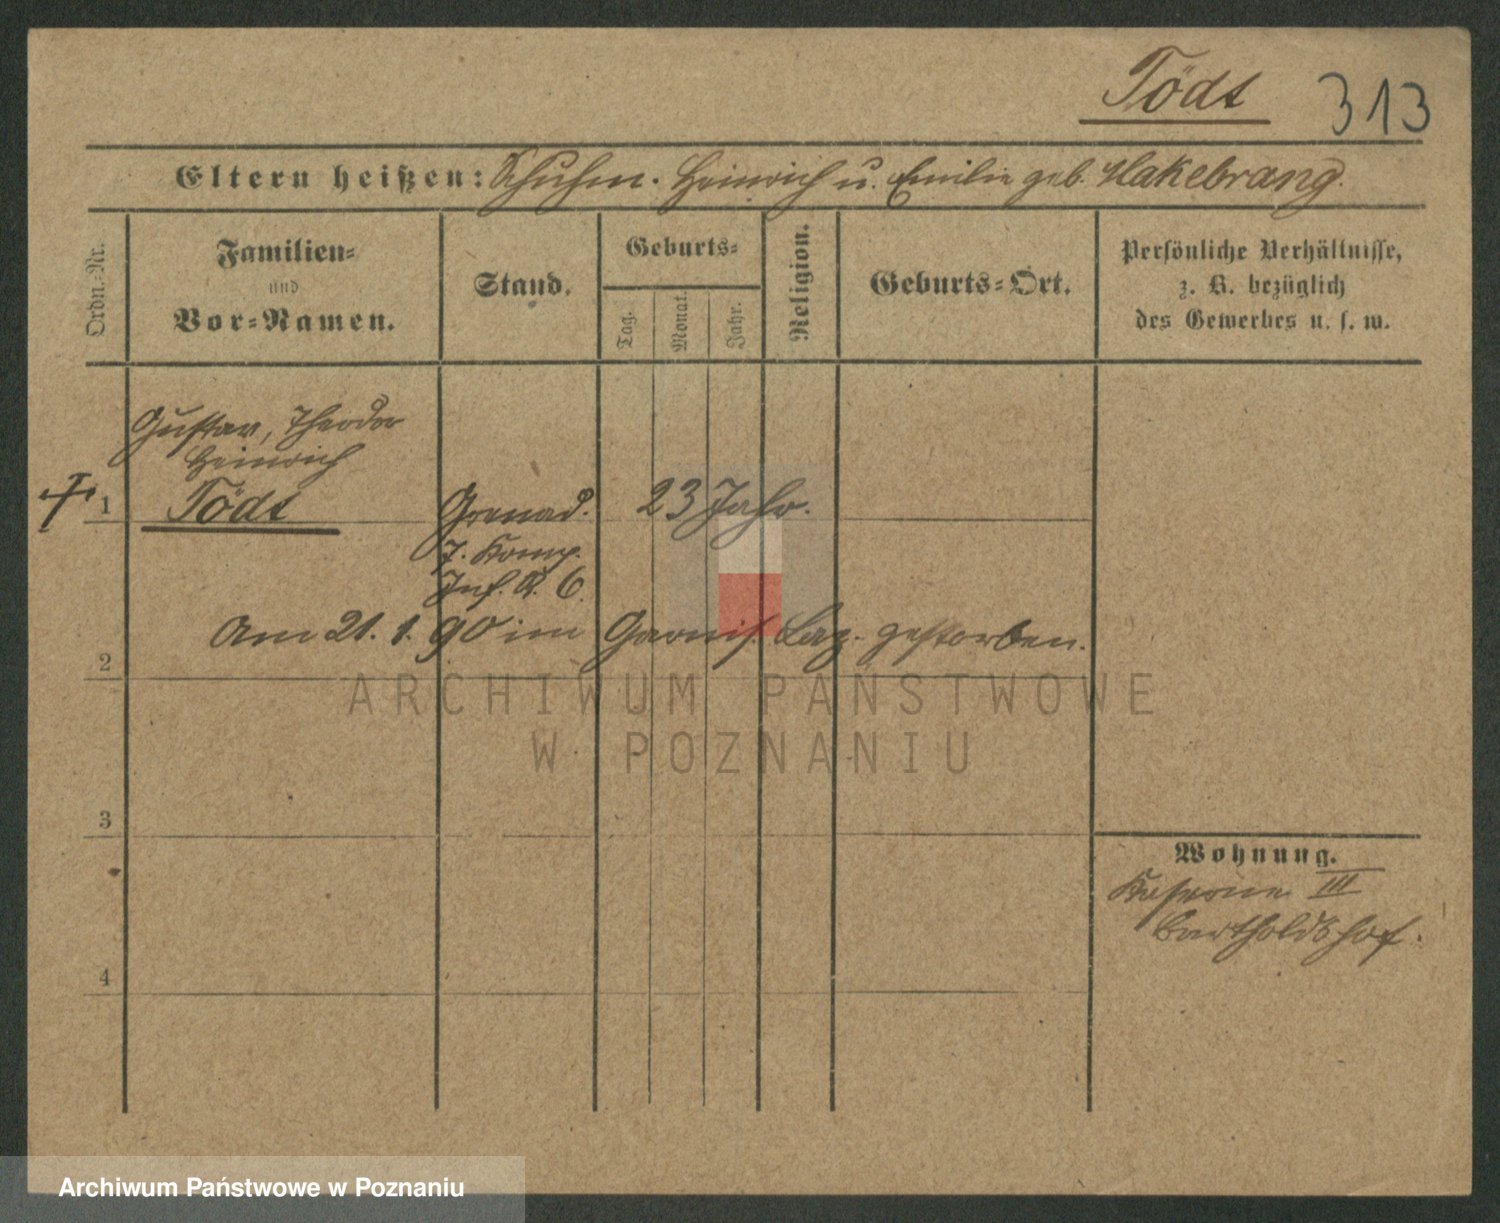 Tödt 313
Eltern heißen: Schuhm. Heinrich u. Emilie geb. Hakebrang.
Ordn.-Nr.
Familien-
und
Vor-Namen.
Stand.
Geburts-
Tag.
Monat.
Jahr.
Religion.
Geburts-Ort.
Persönliche Verhältnisse,
z. B. bezüglich
des Gewerbes u. s. w.
Gustav, Theodor
Heinrich
1 Tödt Grenad. 23 Jahr.
7. Komp.
Inf. R. 6.
Am 21. 1. 90 im Garnis. Laz. gestorben.
2
ARCHIWUM PAŃSTWOWE
W POZNANIU
3
Wohnung.
Kaserne III
Bartholdshof.
4
Archiwum Państwowe w Poznaniu